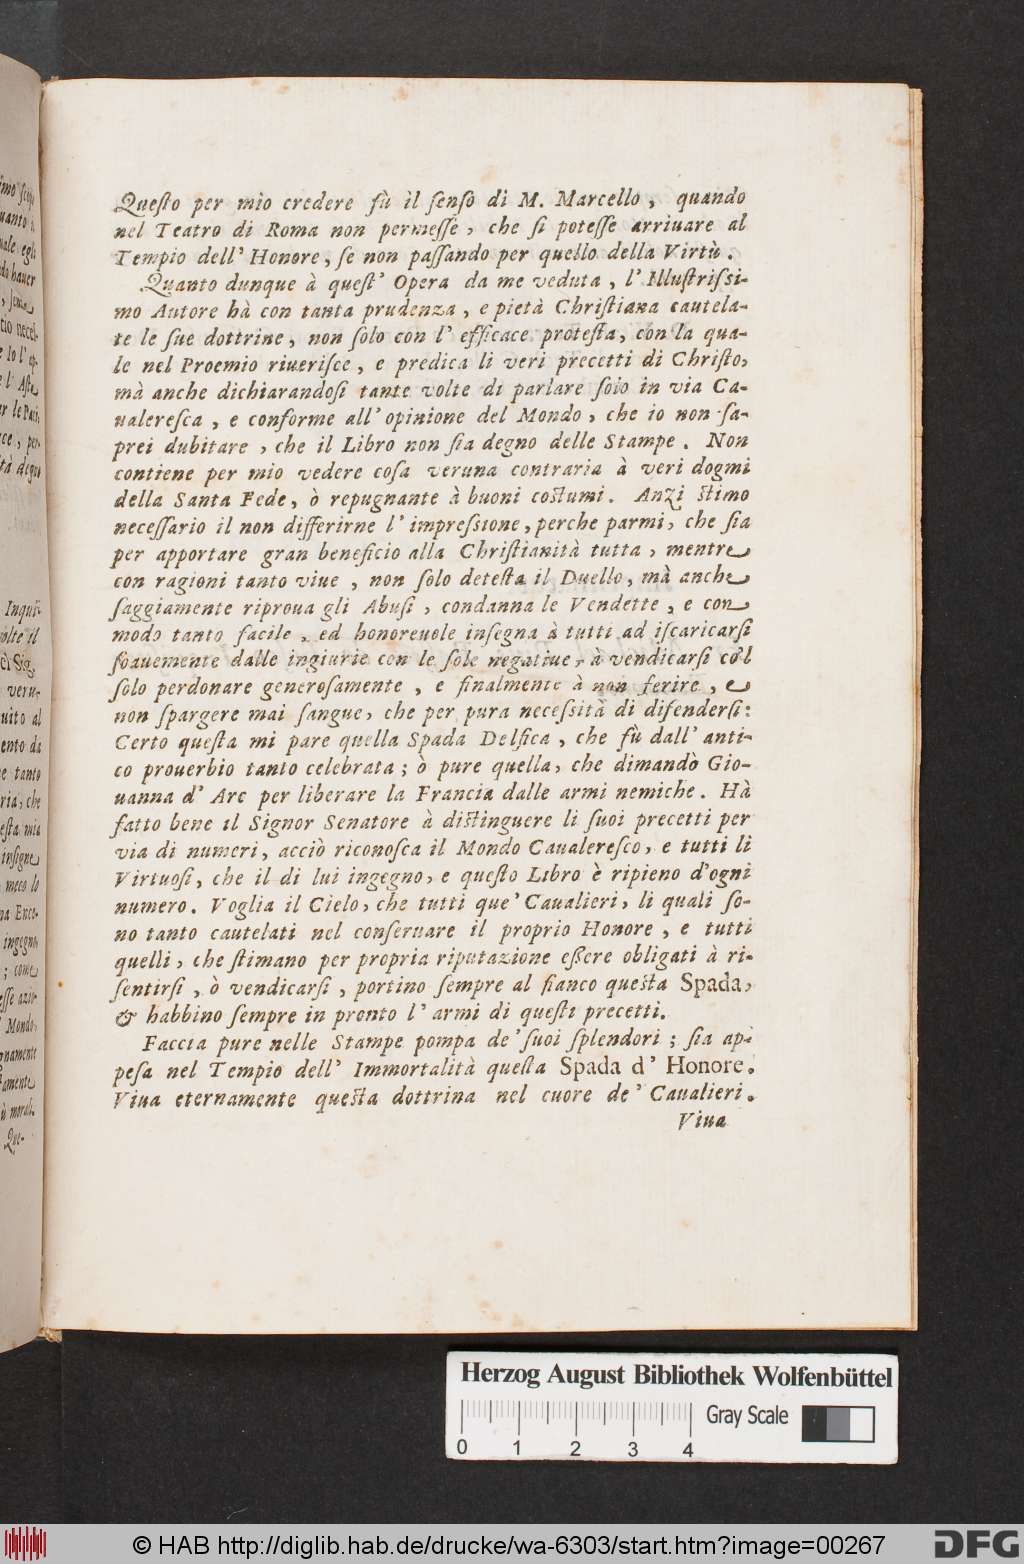 Queſto per mio credere fù il ſenſo di M. Marcello, quando
nel Teatro di Roma non permeſſe, che ſi poteſſe arriuare al
Tempio dell' Honore, ſe non paſſando per quello della Virtù.
Quanto dunque à queſt' Opera da me veduta, l' Illuſtriſsi-
mo Autore hà con tanta prudenza, e pietà Chriſtiana cautela-
te le ſue dottrine, non ſolo con l' efficace proteſta, con la qua-
le nel Proemio riueriſce, e predica li veri precetti di Chriſto,
mà anche dichiarandoſi tante volte di parlare ſolo in via Ca-
ualereſca, e conforme all' opinione del Mondo, che io non ſa-
prei dubitare, che il Libro non ſia degno delle Stampe. Non
contiene per mio vedere coſa veruna contraria à veri dogmi
della Santa Fede, ò repugnante à buoni coſtumi. Anzi ſtimo
neceſſario il non differirne l' impreſsione, perche parmi, che ſia
per apportare gran beneficio alla Chriſtianità tutta, mentre
con ragioni tanto viue, non ſolo deteſta il Duello, mà anche
ſaggiamente riproua gli Abuſi, condanna le Vendette, e con
modo tanto facile, ed honoreuole inſegna à tutti ad iſcaricarſi
ſoauemente dalle ingiurie con le ſole negatiue, à vendicarſi co'l
ſolo perdonare generoſamente, e finalmente à non ferire, e
non ſpargere mai ſangue, che per pura neceſsità di difenderſi:
Certo queſta mi pare quella Spada Delfica, che fù dall' anti-
co prouerbio tanto celebrata; ò pure quella, che dimandò Gio-
uanna d' Arc per liberare la Francia dalle armi nemiche. Hà
fatto bene il Signor Senatore à diſtinguere li ſuoi precetti per
via di numeri, acciò riconoſca il Mondo Caualereſco, e tutti li
Virtuoſi, che il di lui ingegno, e queſto Libro è ripieno d'ogni
numero. Voglia il Cielo, che tutti que' Caualieri, li quali ſo-
no tanto cautelati nel conſeruare il proprio Honore, e tutti
quelli, che ſtimano per propria riputazione eſſere obligati à ri-
ſentirſi, ò vendicarſi, portino ſempre al fianco queſta Spada,
& habbino ſempre in pronto l' armi di queſti precetti.
Faccia pure nelle Stampe pompa de' ſuoi ſplendori; ſia ap-
peſa nel Tempio dell' Immortalità queſta Spada d' Honore.
Viua eternamente queſta dottrina nel cuore de' Caualieri.
Viua
Herzog August Bibliothek Wolfenbüttel
Gray Scale
0 1 2 3 4
© HAB http://diglib.hab.de/drucke/wa-6303/start.htm?image=00267
DFG